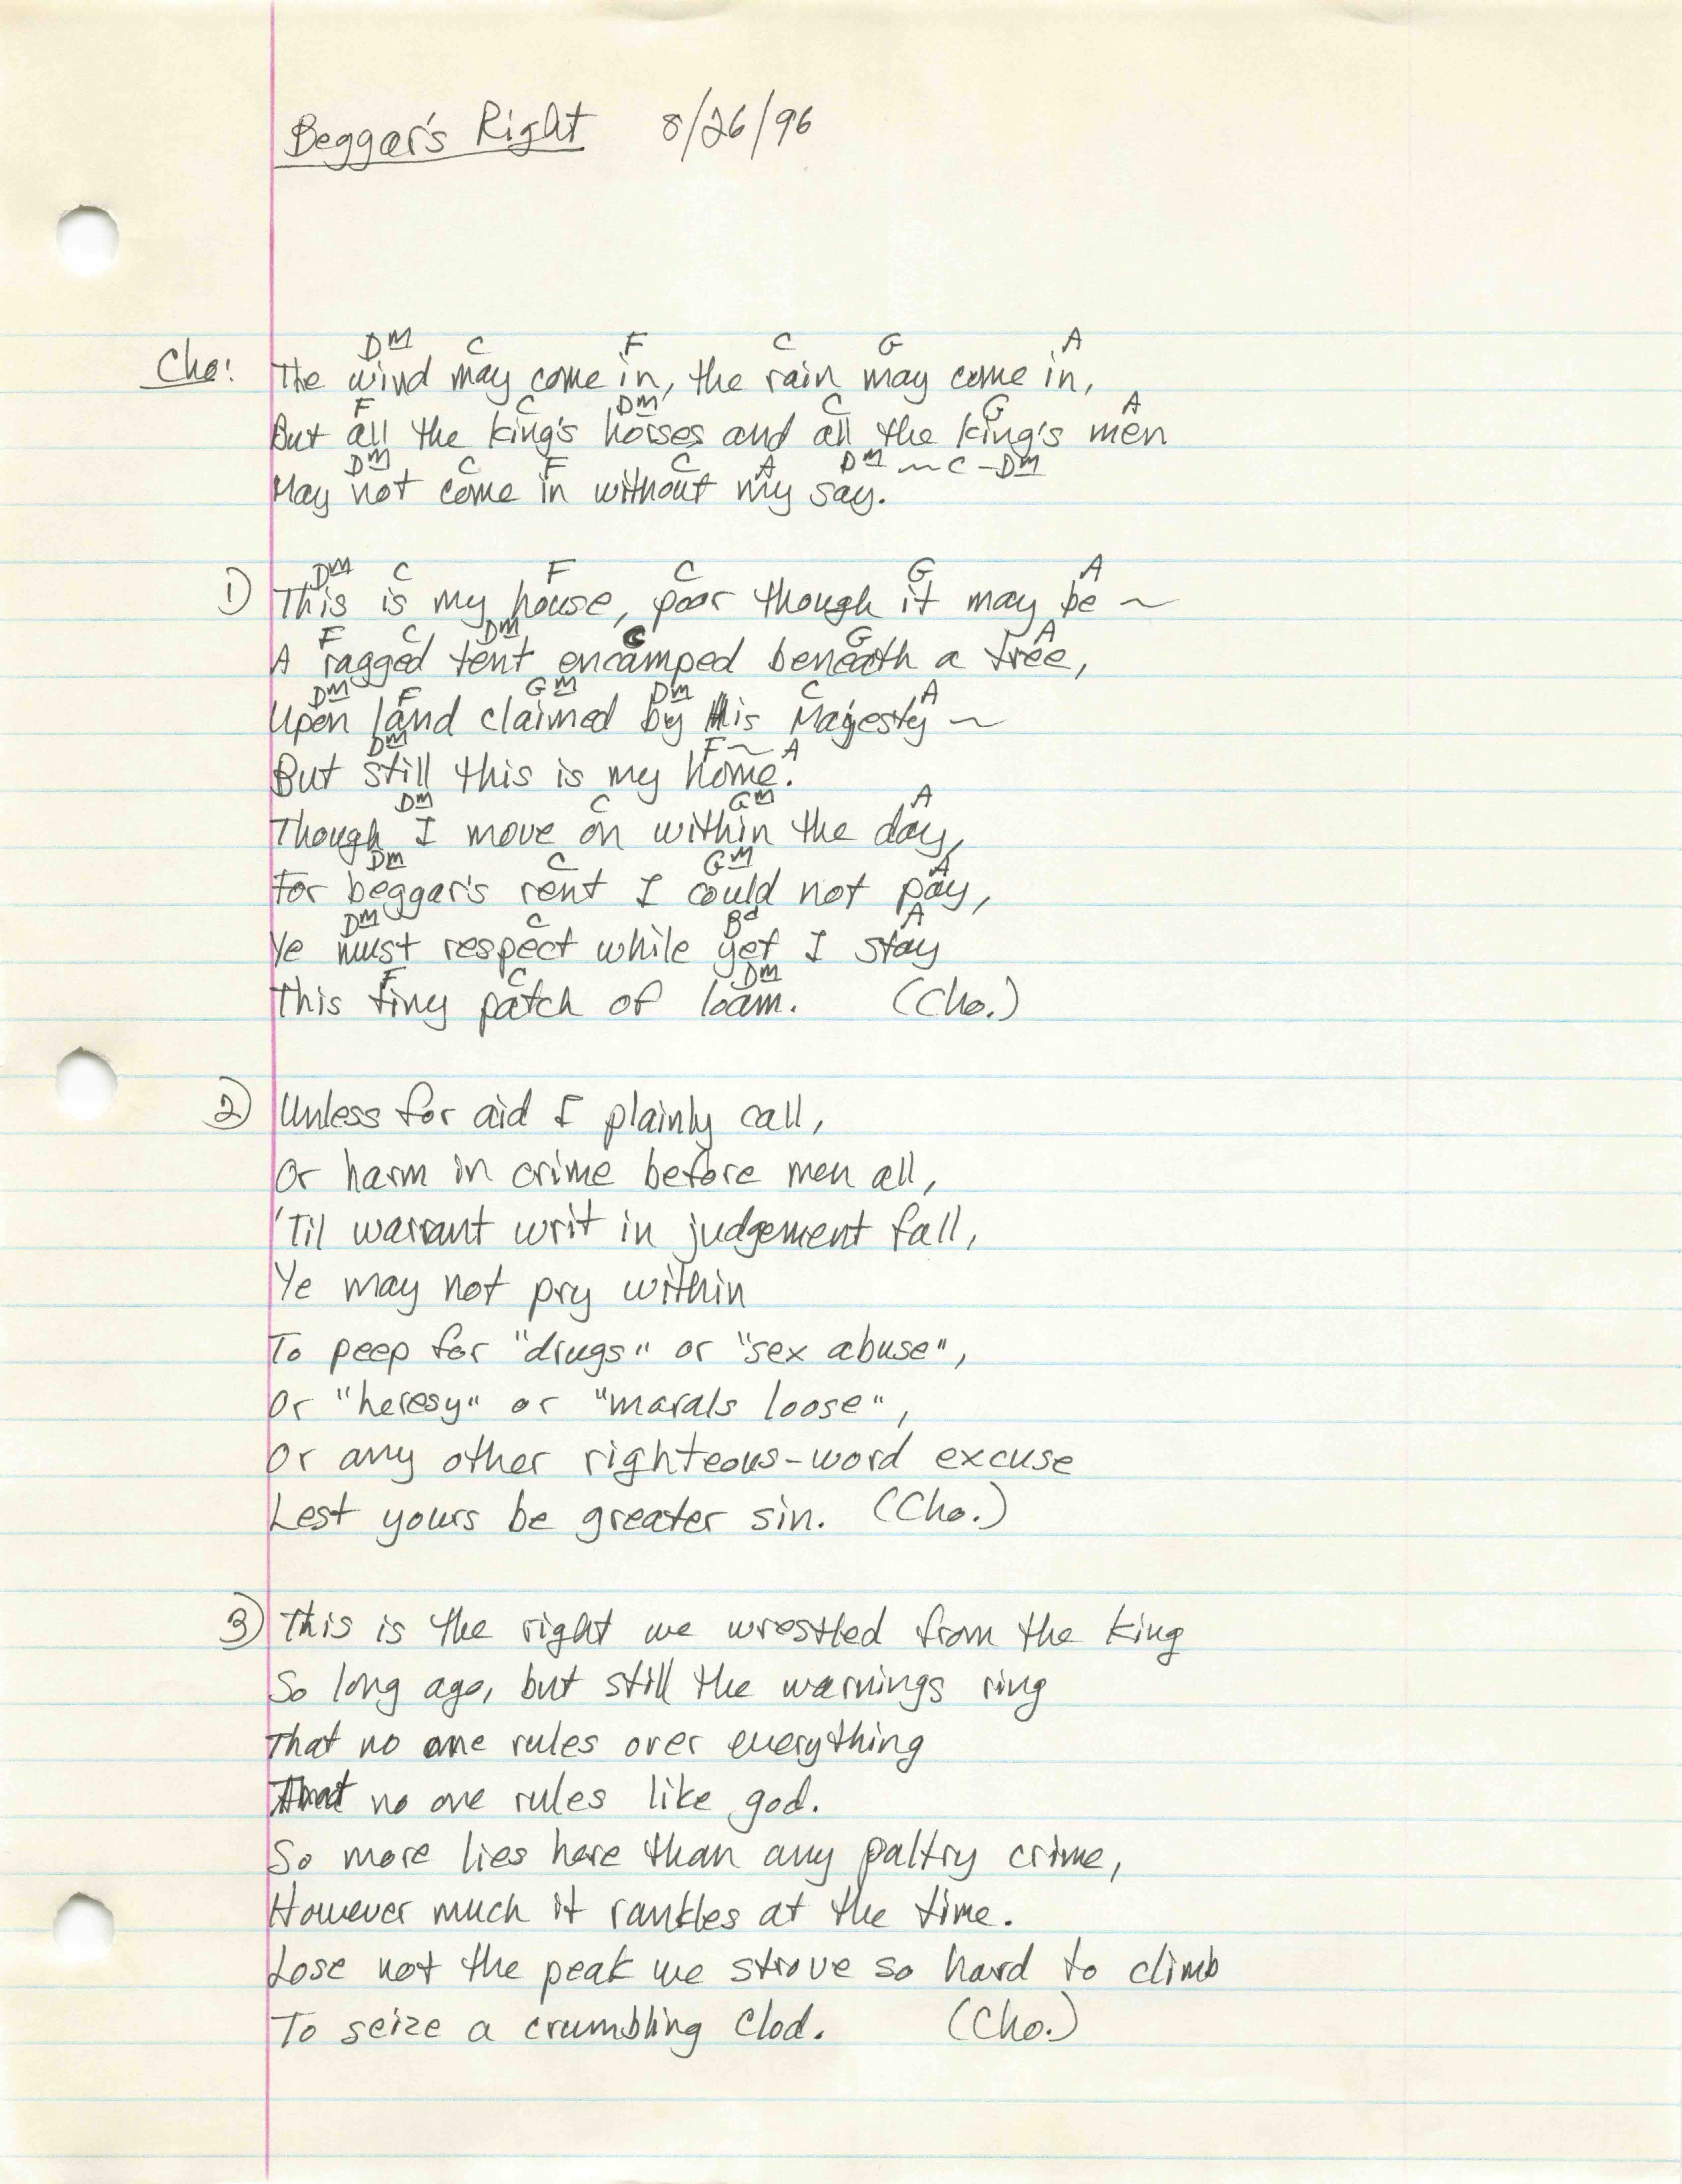 Beggar's Right 8/26/96
DM C F C G A
Cho: The wind may come in, the rain may come in,
F C DM C G A
But all the king's horses and all the king's men
DM C F C A DM ~ C - DM
May not come in without my say.
DM C F C G A
1) This is my house, poor though it may be ~
F C DM C G A
A ragged tent encamped beneath a tree,
DM F GM DM C A
Upon land claimed by His Majesty ~
DM F ~ A
But still this is my home.
DM C GM A
Though I move on within the day,
DM C GM A
For beggar's rent I could not pay,
DM C Bd A
Ye must respect while yet I stay
F C DM
This tiny patch of loam. (Cho.)
2) Unless for aid I plainly call,
Or harm in crime before men all,
'Til warrant writ in judgement fall,
Ye may not pry within
To peep for "drugs" or "sex abuse",
Or "heresy" or "morals loose",
Or any other righteous-word excuse
Lest yours be greater sin. (Cho.)
3) This is the right we wrestled from the king
So long ago, but still the warnings ring
That no one rules over everything
That no one rules like god.
So more lies here than any paltry crime,
However much it rankles at the time.
Lose not the peak we strove so hard to climb
To seize a crumbling clod. (Cho.)